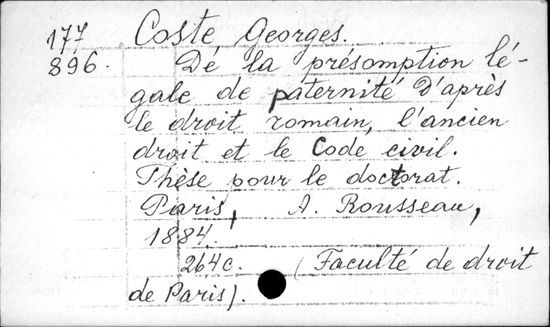 177 Coste Georges.
896. De la présomption lé-
gale de paternité d'après
le droit romain, l'ancien
droit et le Code civil.
Thèse pour le doctorat.
Paris, A. Rousseau,
1884.
264c. (Faculté de droit
de Paris).